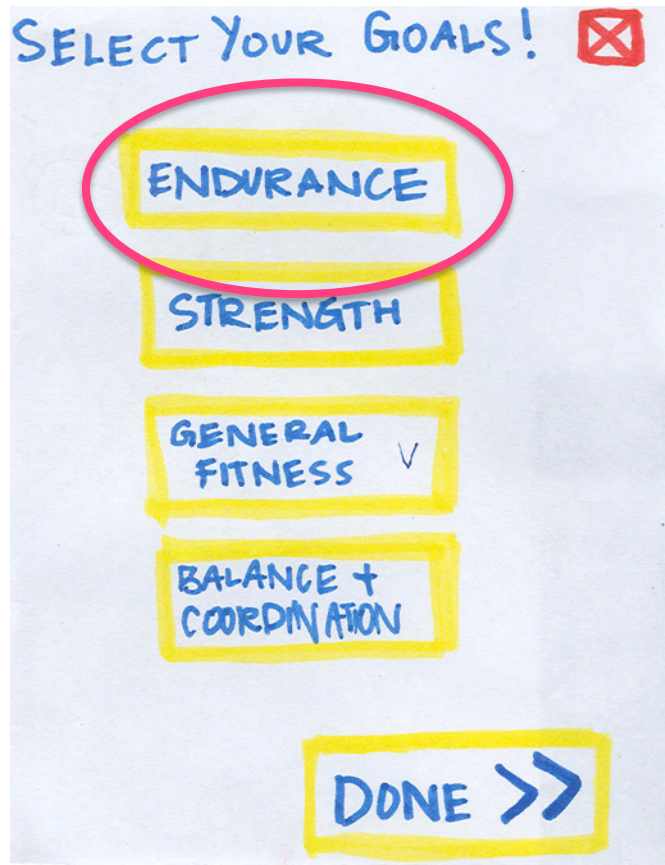 SELECT YOUR GOALS!
ENDURANCE
STRENGTH
GENERAL
FITNESS V
BALANCE +
COORDINATION
DONE >>